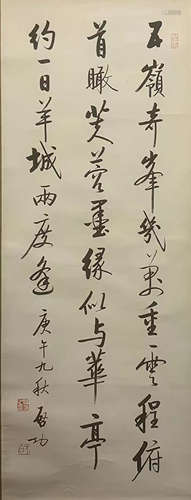 五嶺奇峯幾萬重一雲程俯
首瞰芙蓉墨緣似与華亭
約一日羊城兩度逢 庚午九秋 啟功